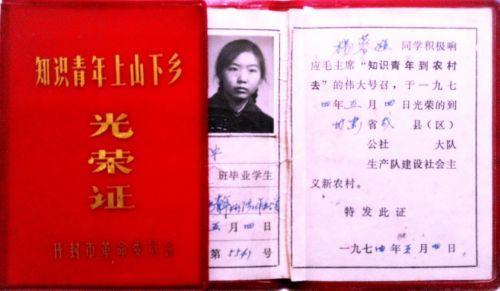 知识青年上山下乡
光
荣
证
开封市革命委员会
毕
班毕业学生
五月四日
第5541号
杨蓉 同学积极响
应毛主席“知识青年到农村
去”的伟大号召，于一九七
四年五月四日光荣的到
甘肃省 县（区）
公社 大队
生产队建设社会主
义新农村。
特发此证
一九七四年五月四日